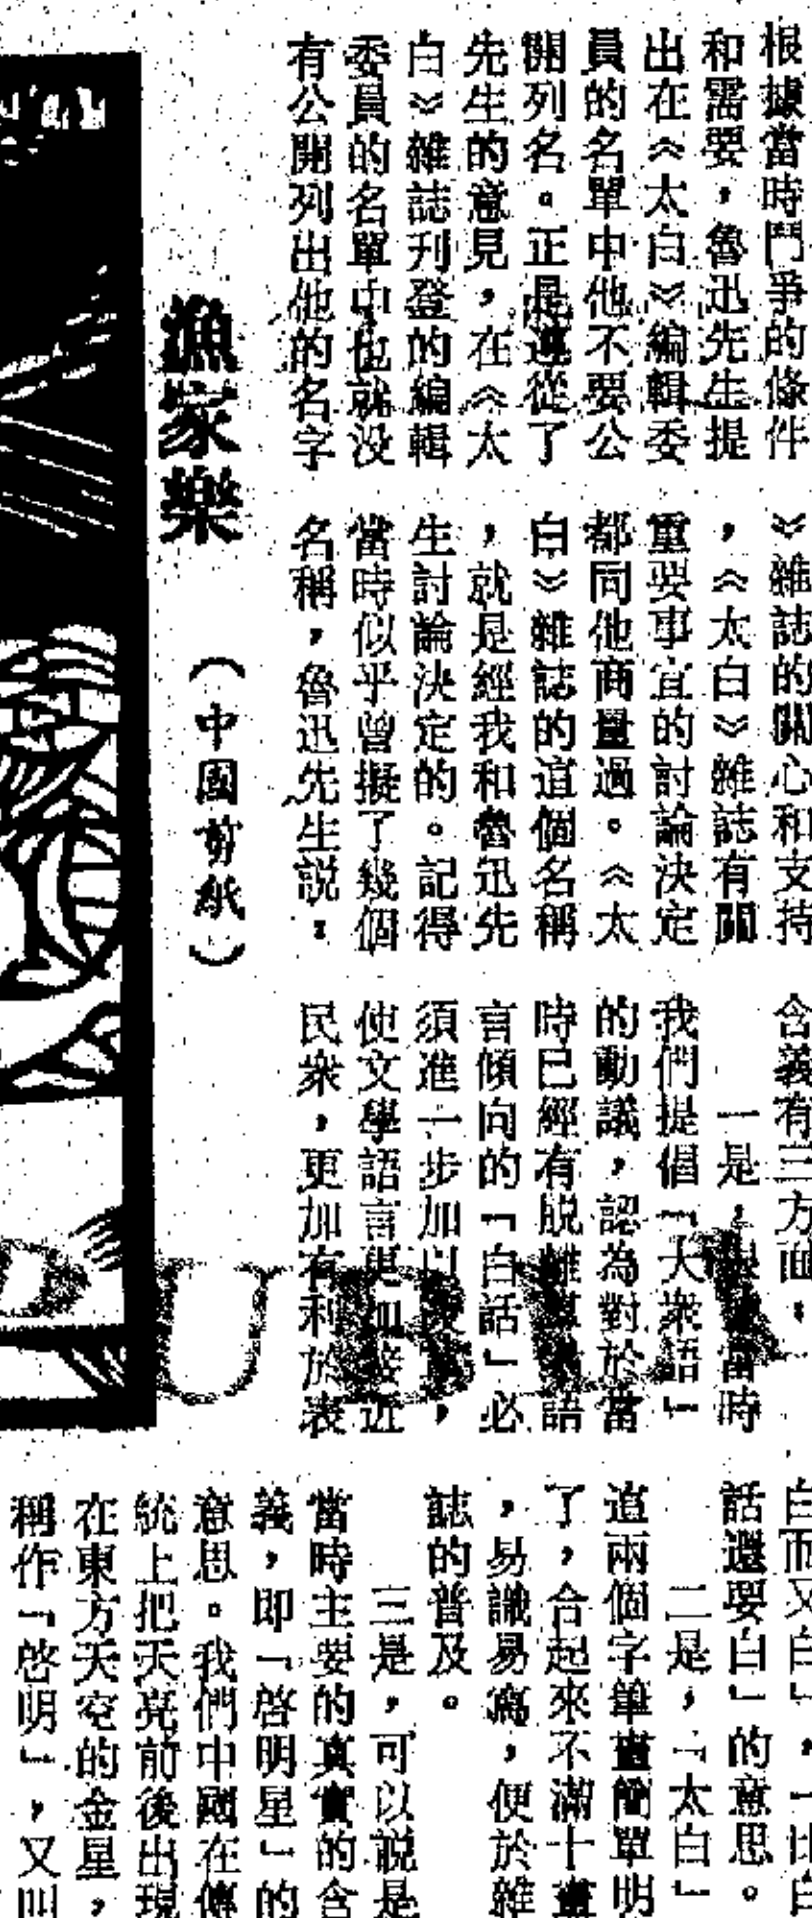 根據當時鬥爭的條件
和需要，魯迅先生提
出在《太白》編輯委
員的名單中他不要公
開列名。正是遵從了
先生的意見，在《太
白》雜誌刊登的編輯
委員的名單中也就没
有公開列出他的名字
》雜誌的關心和支持
，《太白》雜誌有關
重要事宜的討論決定
都同他商量過。《太
白》雜誌的這個名稱
，就是經我和魯迅先
生討論決定的。記得
當時似乎曾擬了幾個
名稱，魯迅先生説：
漁家樂
（中國剪紙）
含義有三方面，
一是，當時
我們提倡「大衆語」
的動議，認為對於當
時已經有脱離語
言傾向的「白話」必
須進一步加以，
使文學語言更加接近
民衆，更加有利於表
白而又白」，一比白
話還要白」的意思。
二是，「太白」
這兩個字筆畫簡單明
了，合起來不滿十畫
，易識易寫，便於雜
誌的普及。
三是，可以説是
當時主要的真實的含
義，即「啓明星」的
意思。我們中國在傳
統上把天亮前後出現
在東方天空的金星，
稱作「啓明」，又叫